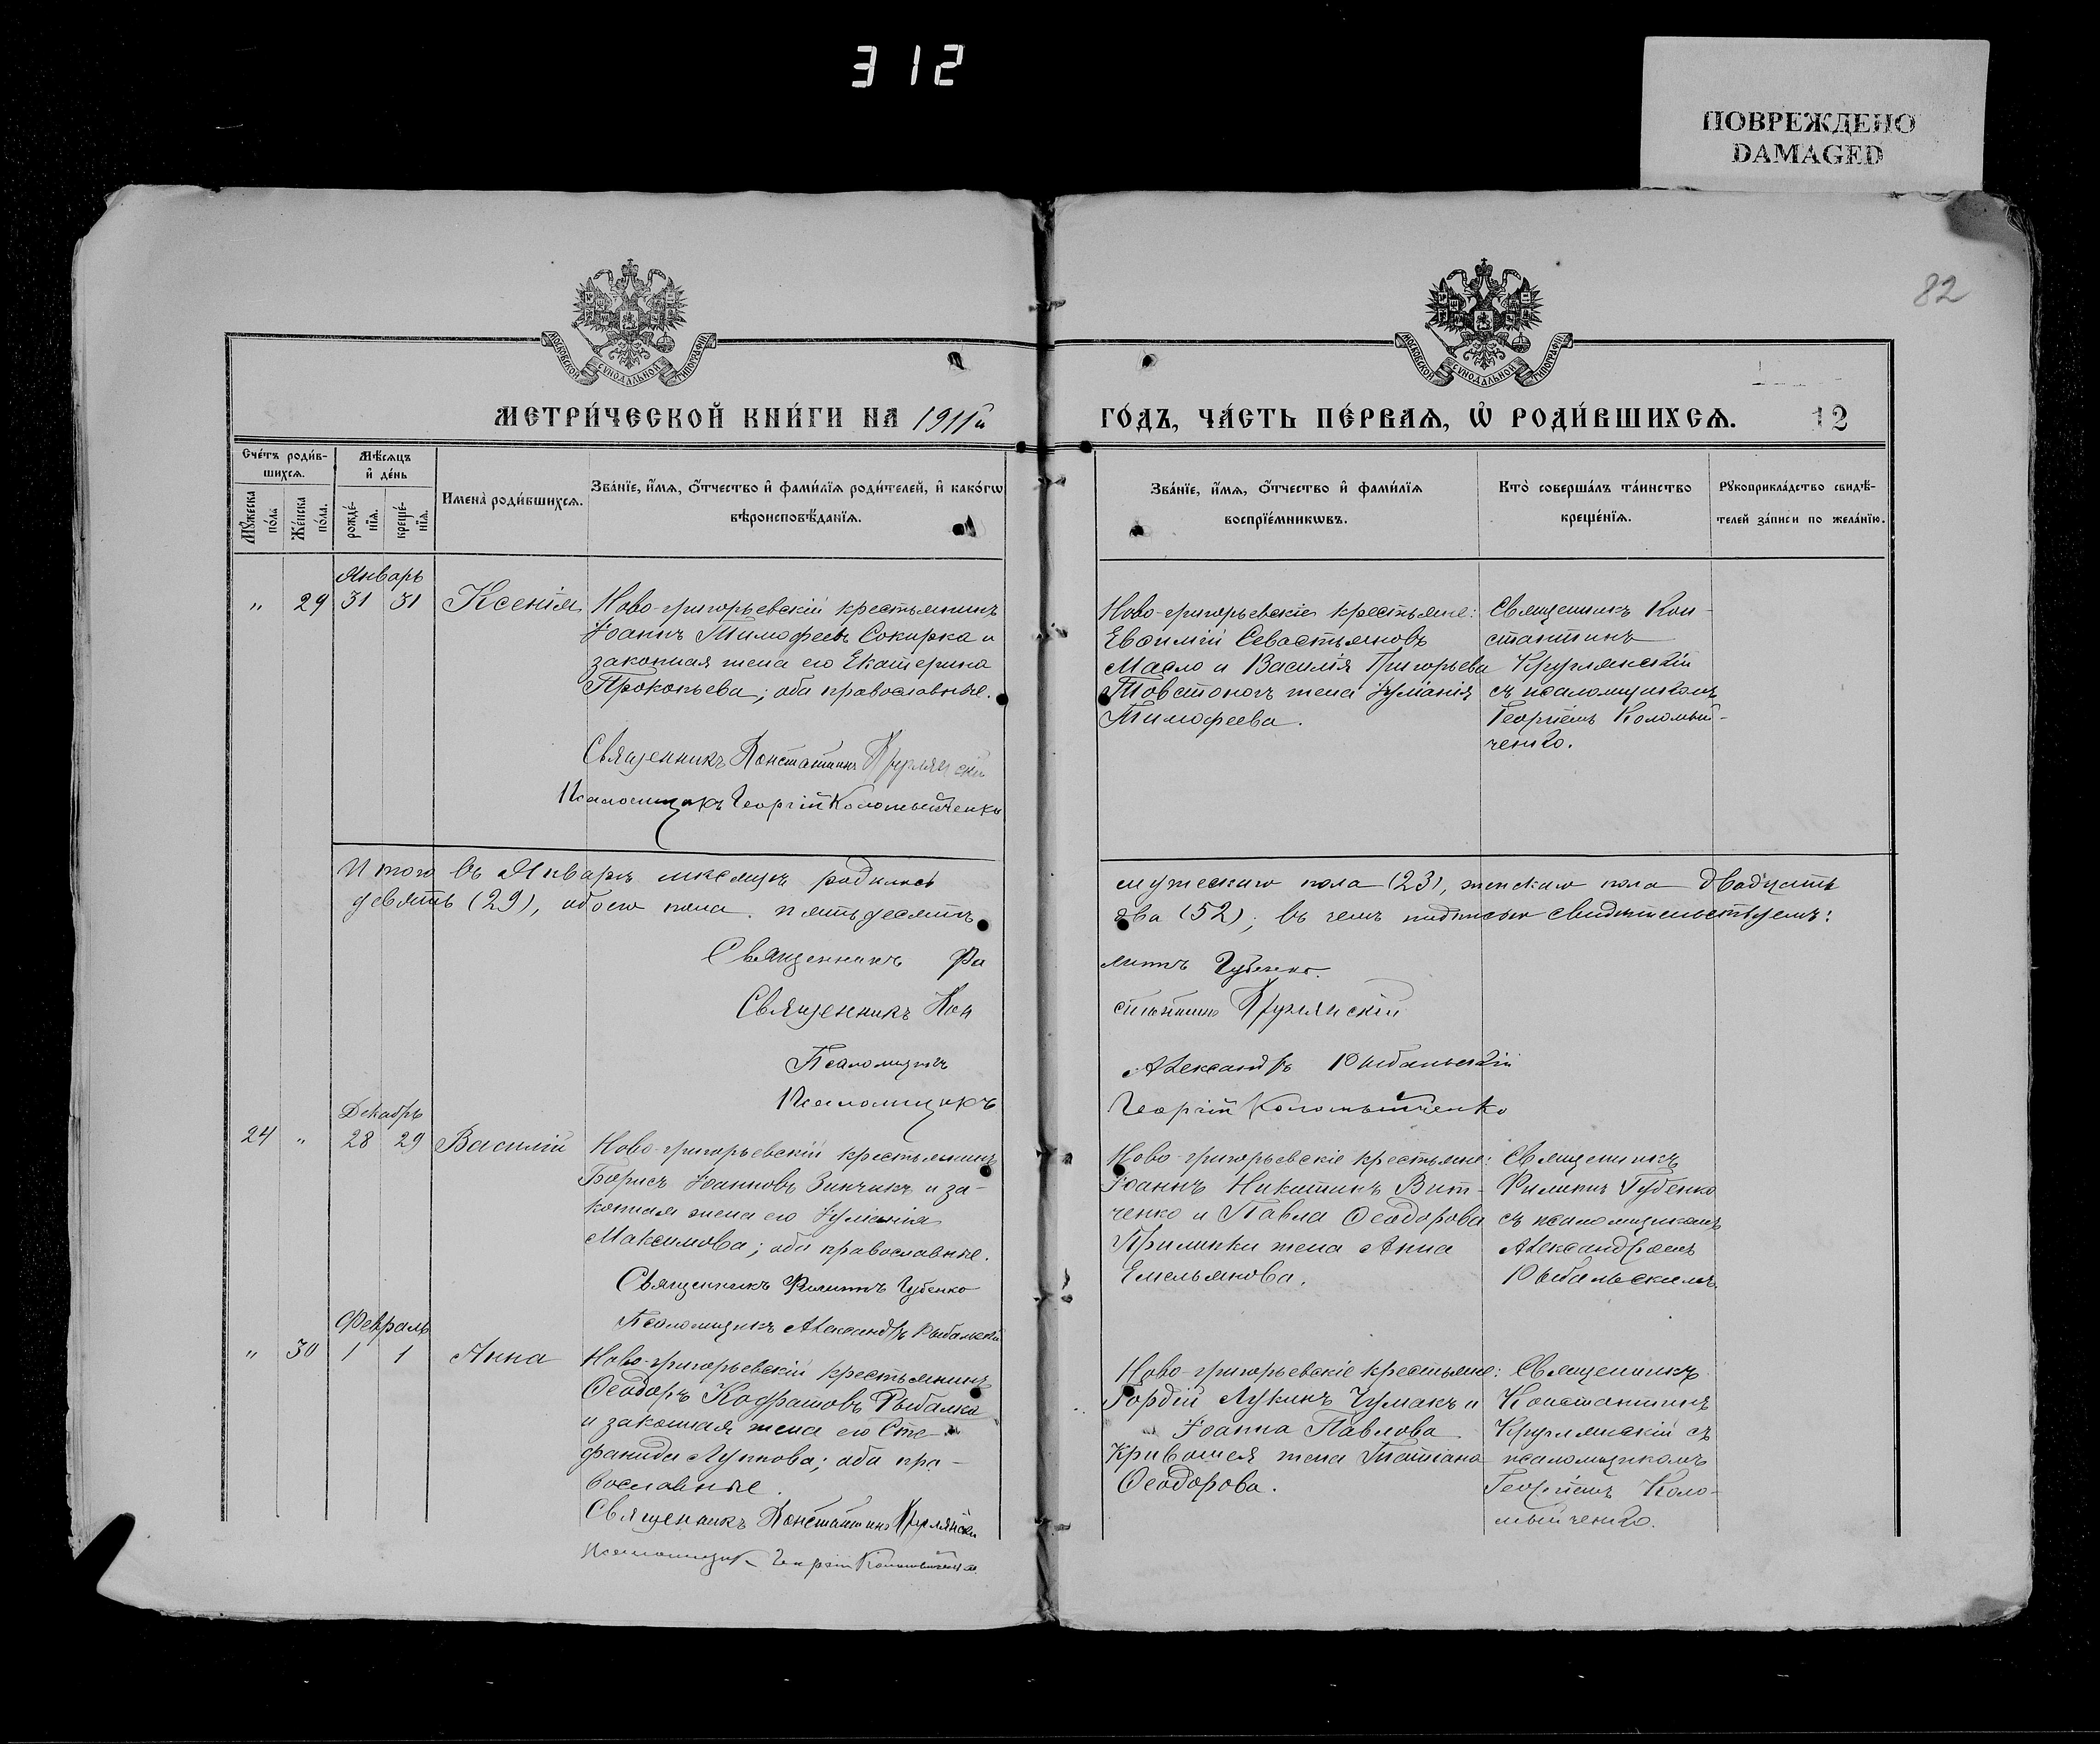 312
ПОВРЕЖДЕНО
DAMAGED
82
МОСКОВСКОЙ СѴНОДАЛЬНОЙ ТИПОГРАФІИ
МОСКОВСКОЙ СѴНОДАЛЬНОЙ ТИПОГРАФІИ
МЕТРИ́ЧЕСКОЙ КНИ́ГИ НА 1911й
ГО́ДЪ, ЧА́СТЬ ПЕ́РВАѦ, Ѡ҆ РОДИ́ВШИХСѦ. 12
Сче́тъ роди́в-
шихсѧ.
Мꙋ́жеска по́ла
Же́нска по́ла.
Мѣ́сѧцъ
и҆ де́нь
рожде́нїѧ.
креще́нїѧ.
Имена̀ роди́вшихсѧ.
Зва́нїе, и҆́мѧ, ѻ҆́тчество и҆ фами́лїѧ роди́телей, и҆ како́гѡ
вѣроисповѣ́данїѧ.
Зва́нїе, и҆́мѧ, ѻ҆́тчество и҆ фами́лїѧ
воспрїе́мникѡвъ.
Кто̀ соверша́лъ та́инство
креще́нїѧ.
Рꙋкоприкла́дство свидѣ́-
телей за́писи по жела́нїю.
Январь
„ 29 31 31 Ксенія
Ново-григорьевскій крестьянинъ
Іоаннъ Тимофеевъ Сокирка и
законная жена его Екатерина
Прокопьева; оба православные.
Священникъ Константинъ Круглянскій
Псаломщикъ Георгій Коломыйченко
Ново-григорьевскіе крестьяне:
Евѳимій Севастьяновъ
Масло и Василія Григорьева
Товстоногъ жена Іуліанія
Тимофеева.
Священникъ Кон-
стантинъ
Круглянскій
съ псаломщикомъ
Георгіемъ Коломый-
ченко.
Итого въ Январѣ мѣсяцѣ родилось
мужескаго пола (23), женскаго пола двадцать
девять (29), обоего пола пятьдесятъ
два (52); въ чемъ подписью свидѣтельствуемъ:
Священникъ Филиппъ Губенко.
Священникъ Константинъ Круглянскій
Псаломщикъ Александръ Рыбальскій
Псаломщикъ Георгій Коломыйченко
Декабрь
24 „ 28 29 Василій
Ново-григорьевскій крестьянинъ
Борисъ Іоанновъ Зинчикъ и за-
конная жена его Іуліанія
Максимова; оба православные.
Священникъ Филиппъ Губенко
Псаломщикъ Александръ Рыбальскій
Ново-григорьевскіе крестьяне:
Іоаннъ Никитинъ Вит-
ченко и Павла Ѳеодорова
Прилипки жена Анна
Емельянова.
Священникъ
Филиппъ Губенко
съ псаломщикомъ
Александромъ
Рыбальскимъ.
Февраль
„ 30 1 1 Анна
Ново-григорьевскій крестьянинъ
Ѳеодоръ Кодратовъ Рыбалка
и законная жена его Сте-
фанида Луппова; оба пра-
вославные.
Священникъ Константинъ Круглянскій
Псаломщикъ Георгій Коломыйченко.
Ново-григорьевскіе крестьяне:
Гордій Лукинъ Чумакъ и
Іоанна Павлова
Кривошея жена Татіана
Ѳеодорова.
Священникъ
Константинъ
Круглянскій съ
псаломщикомъ
Георгіемъ Коло-
мыйченко.